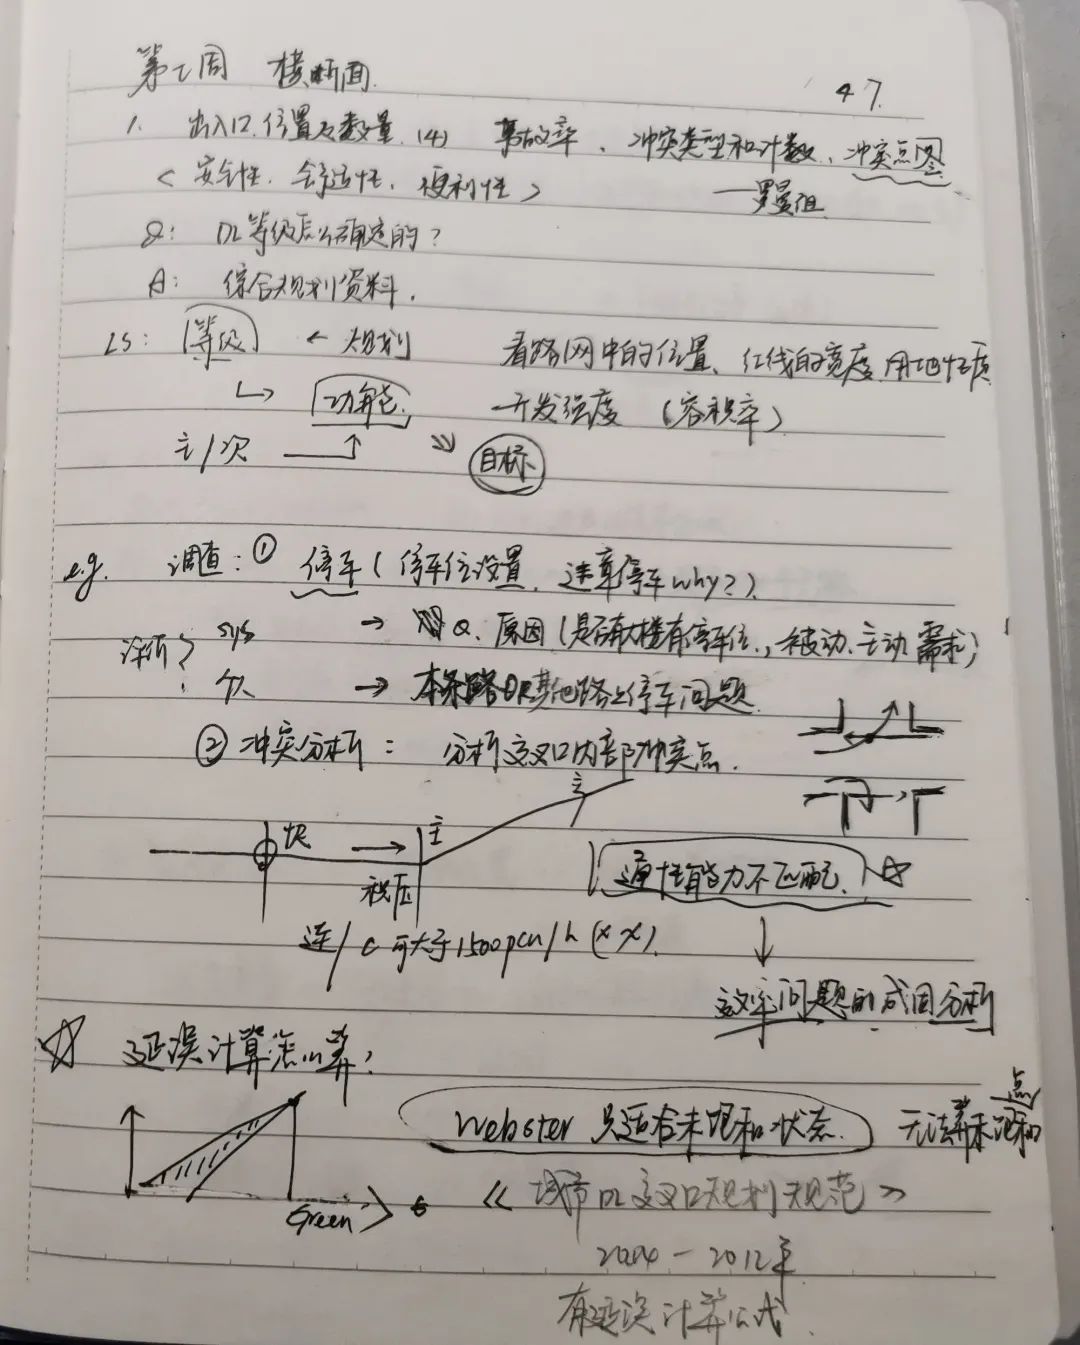 第七周 横断面
47.
1. 出入口.位置及数量.(4) 事故率、冲突类型和计数、冲突点图
<安全性、舒适性、便利性> —罗曼组
Q: DL等级怎么确定的?
A: 综合规划资料.
LS: 等级 ← 规划 看路网中的位置、红线的宽度、用地性质
↳ 功能 开发强度 (容积率)
主/次 目标
e.g. 调查: ① 停车 (停车位设置、违章停车 why?).
sys → Q. 原因 (是否大楼有停车位., 被动、主动 需求)
个 → 本条路OR其他路上停车问题.
② 冲突分析: 分析交叉口内部冲突点.
主
快 → 主
通性能力不匹配.
C 可大于1500pcu/h (xx).
效率问题的成因分析
☆ 延误计算怎么算?
点
Webster 只适合未饱和状态. 无法算未饱和
Green
《城市DL交叉口规划规范》
2004-2012年
有延误计算公式.